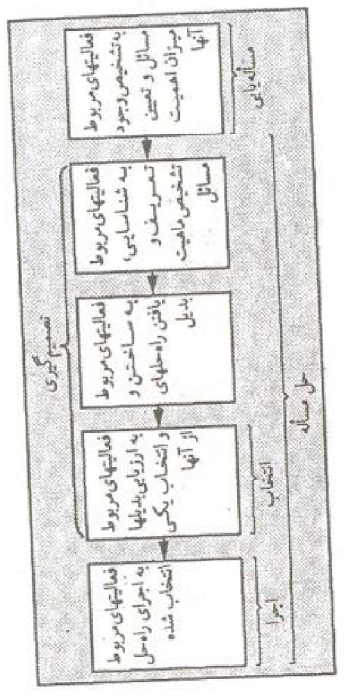 فعالیتهای مربوط
به تشخیص وجود
مسائل و تعیین
میزان اهمیت
آنها
فعالیتهای مربوط
به شناسایی،
تعریف و
تشخیص ماهیت
مسائل
فعالیتهای مربوط
به ساختن و
یافتن راه‌حلهای
بدیل
فعالیتهای مربوط
به ارزیابی بدیلها
و انتخاب یکی
از آنها
فعالیتهای مربوط
به اجرای راه‌حل
انتخاب شده
تصمیم گیری
مسأله‌یابی
انتخاب
اجرا
حل مسأله